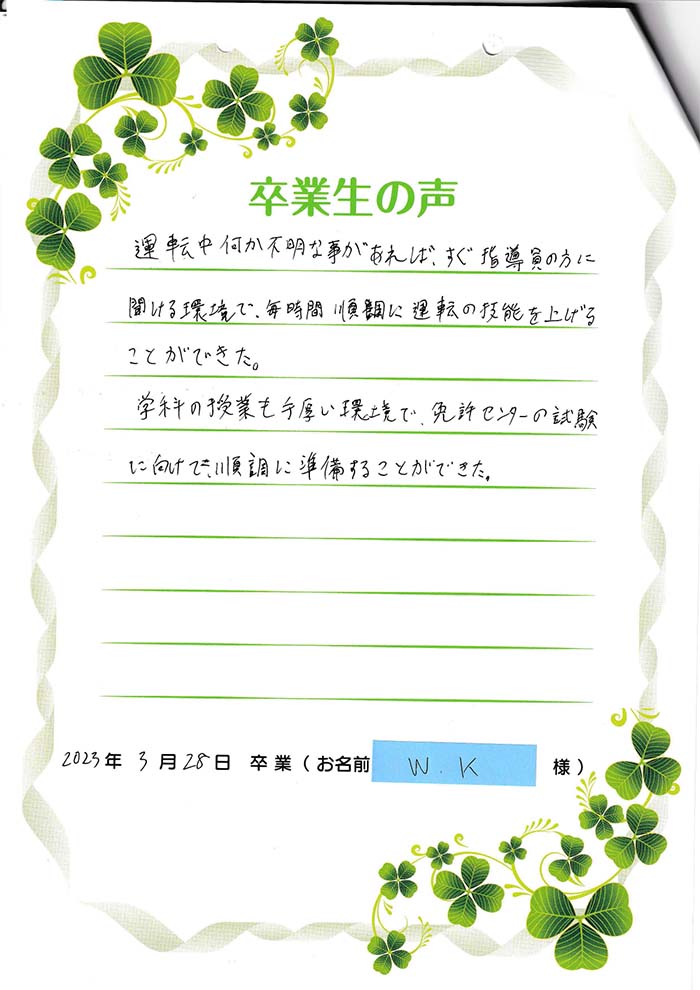 卒業生の声
運転中何か不明な事があれば、すぐ指導員の方に
聞ける環境で、毎時間順調に運転の技能を上げる
ことができた。
学科の授業も手厚い環境で、免許センターの試験
に向けても順調に準備することができた。
2023年 3月28日 卒業(お名前 W.K 様)